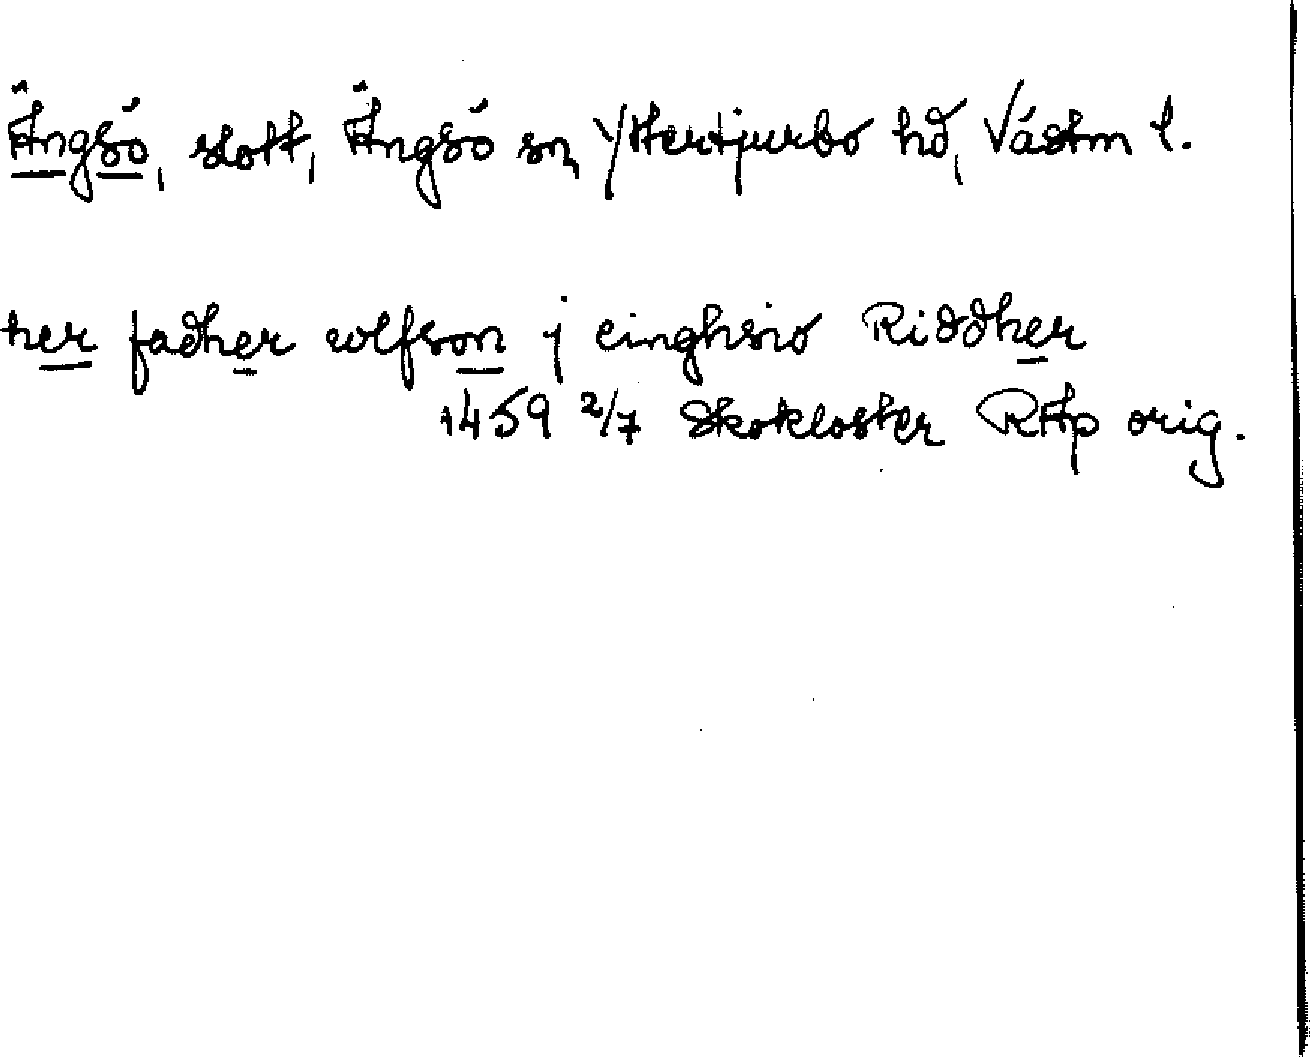 Ängsö, slott, Ängsö sn, Yttertjurbo hd, Västm l.
her fadher wlfson j einghsio Riddher
1459 2/7 Skokloster RAp orig.